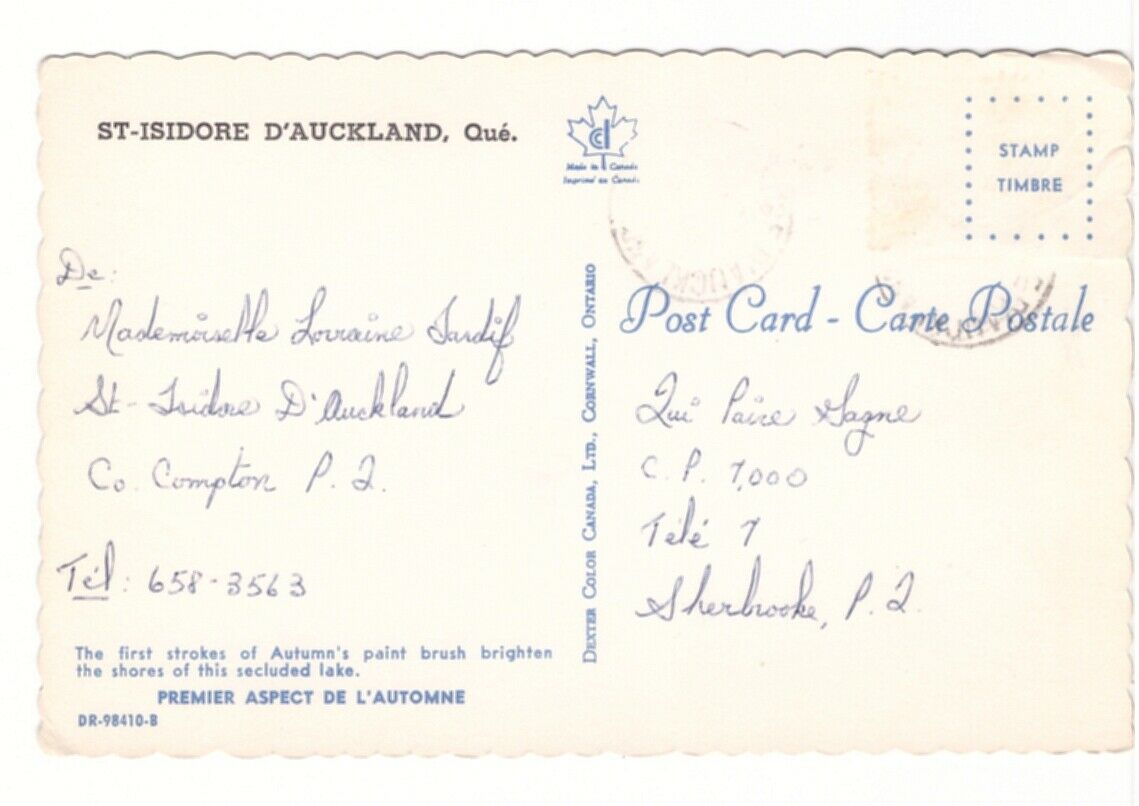 ST-ISIDORE D'AUCKLAND, Qué.
De:
Mademoiselle Lorraine Tardif
St-Isidore D'Auckland
Co. Compton P.Q.
Tél: 658-3563
The first strokes of Autumn's paint brush brighten
the shores of this secluded lake.
PREMIER ASPECT DE L'AUTOMNE
DR-98410-B
Made in Canada
Imprimé au Canada
DEXTER COLOR CANADA, LTD., CORNWALL, ONTARIO
STAMP
TIMBRE
D'AUCKLAND
Post Card - Carte Postale
Qui Paire Gagne
C.P. 7,000
Télé 7
Sherbrooke, P.Q.